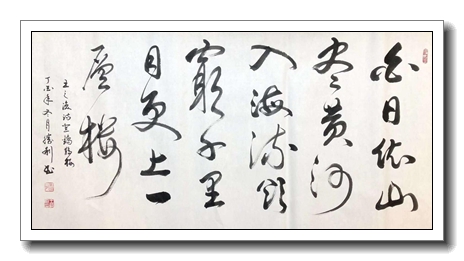 白日依山
尽黄河
入海流欲
窮千里
目更上一
層楼
王之涣诗登鹳雀楼
丁酉年冬月胜利书